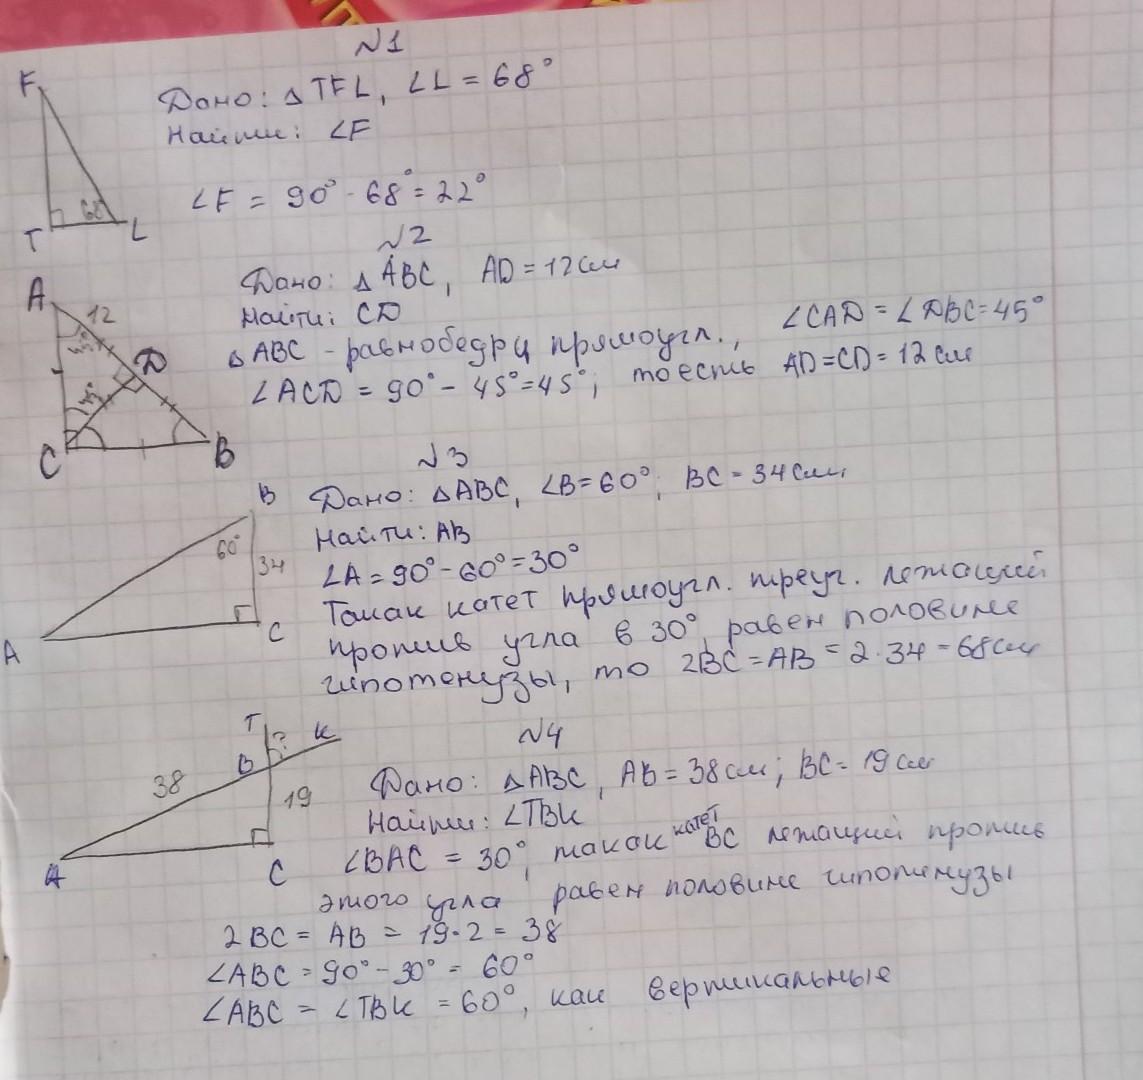 N1
F
Дано: △TFL, ∠L = 68°
Найти: ∠F
∠F = 90° - 68° = 22°
68°
T
L
N2
Дано: △ABC, AD = 12 см
Найти: CD
A
12
45°
D
45°
C
B
△ABC - равнобедр и прямоугл., ∠CAD = ∠DBC = 45°
∠ACD = 90° - 45° = 45°; тоесть AD = CD = 12 см
N3
B
Дано: △ABC, ∠B = 60°; BC = 34 см
Найти: AB
60°
34
∠A = 90° - 60° = 30°
A
C
Такак катет прямоугл. треуг. лежащий
против угла в 30°, равен половине
гипотенузы, то 2BC = AB = 2·34 = 68 см
N4
T
?
K
B
38
19
A
C
Дано: △ABC, AB = 38 см; BC = 19 см
Найти: ∠TBK
∠BAC = 30°, такак катет BC лежащий против
этого угла равен половине гипотенузы
2BC = AB = 19·2 = 38
∠ABC = 90° - 30° = 60°
∠ABC = ∠TBK = 60°, как вертикальные